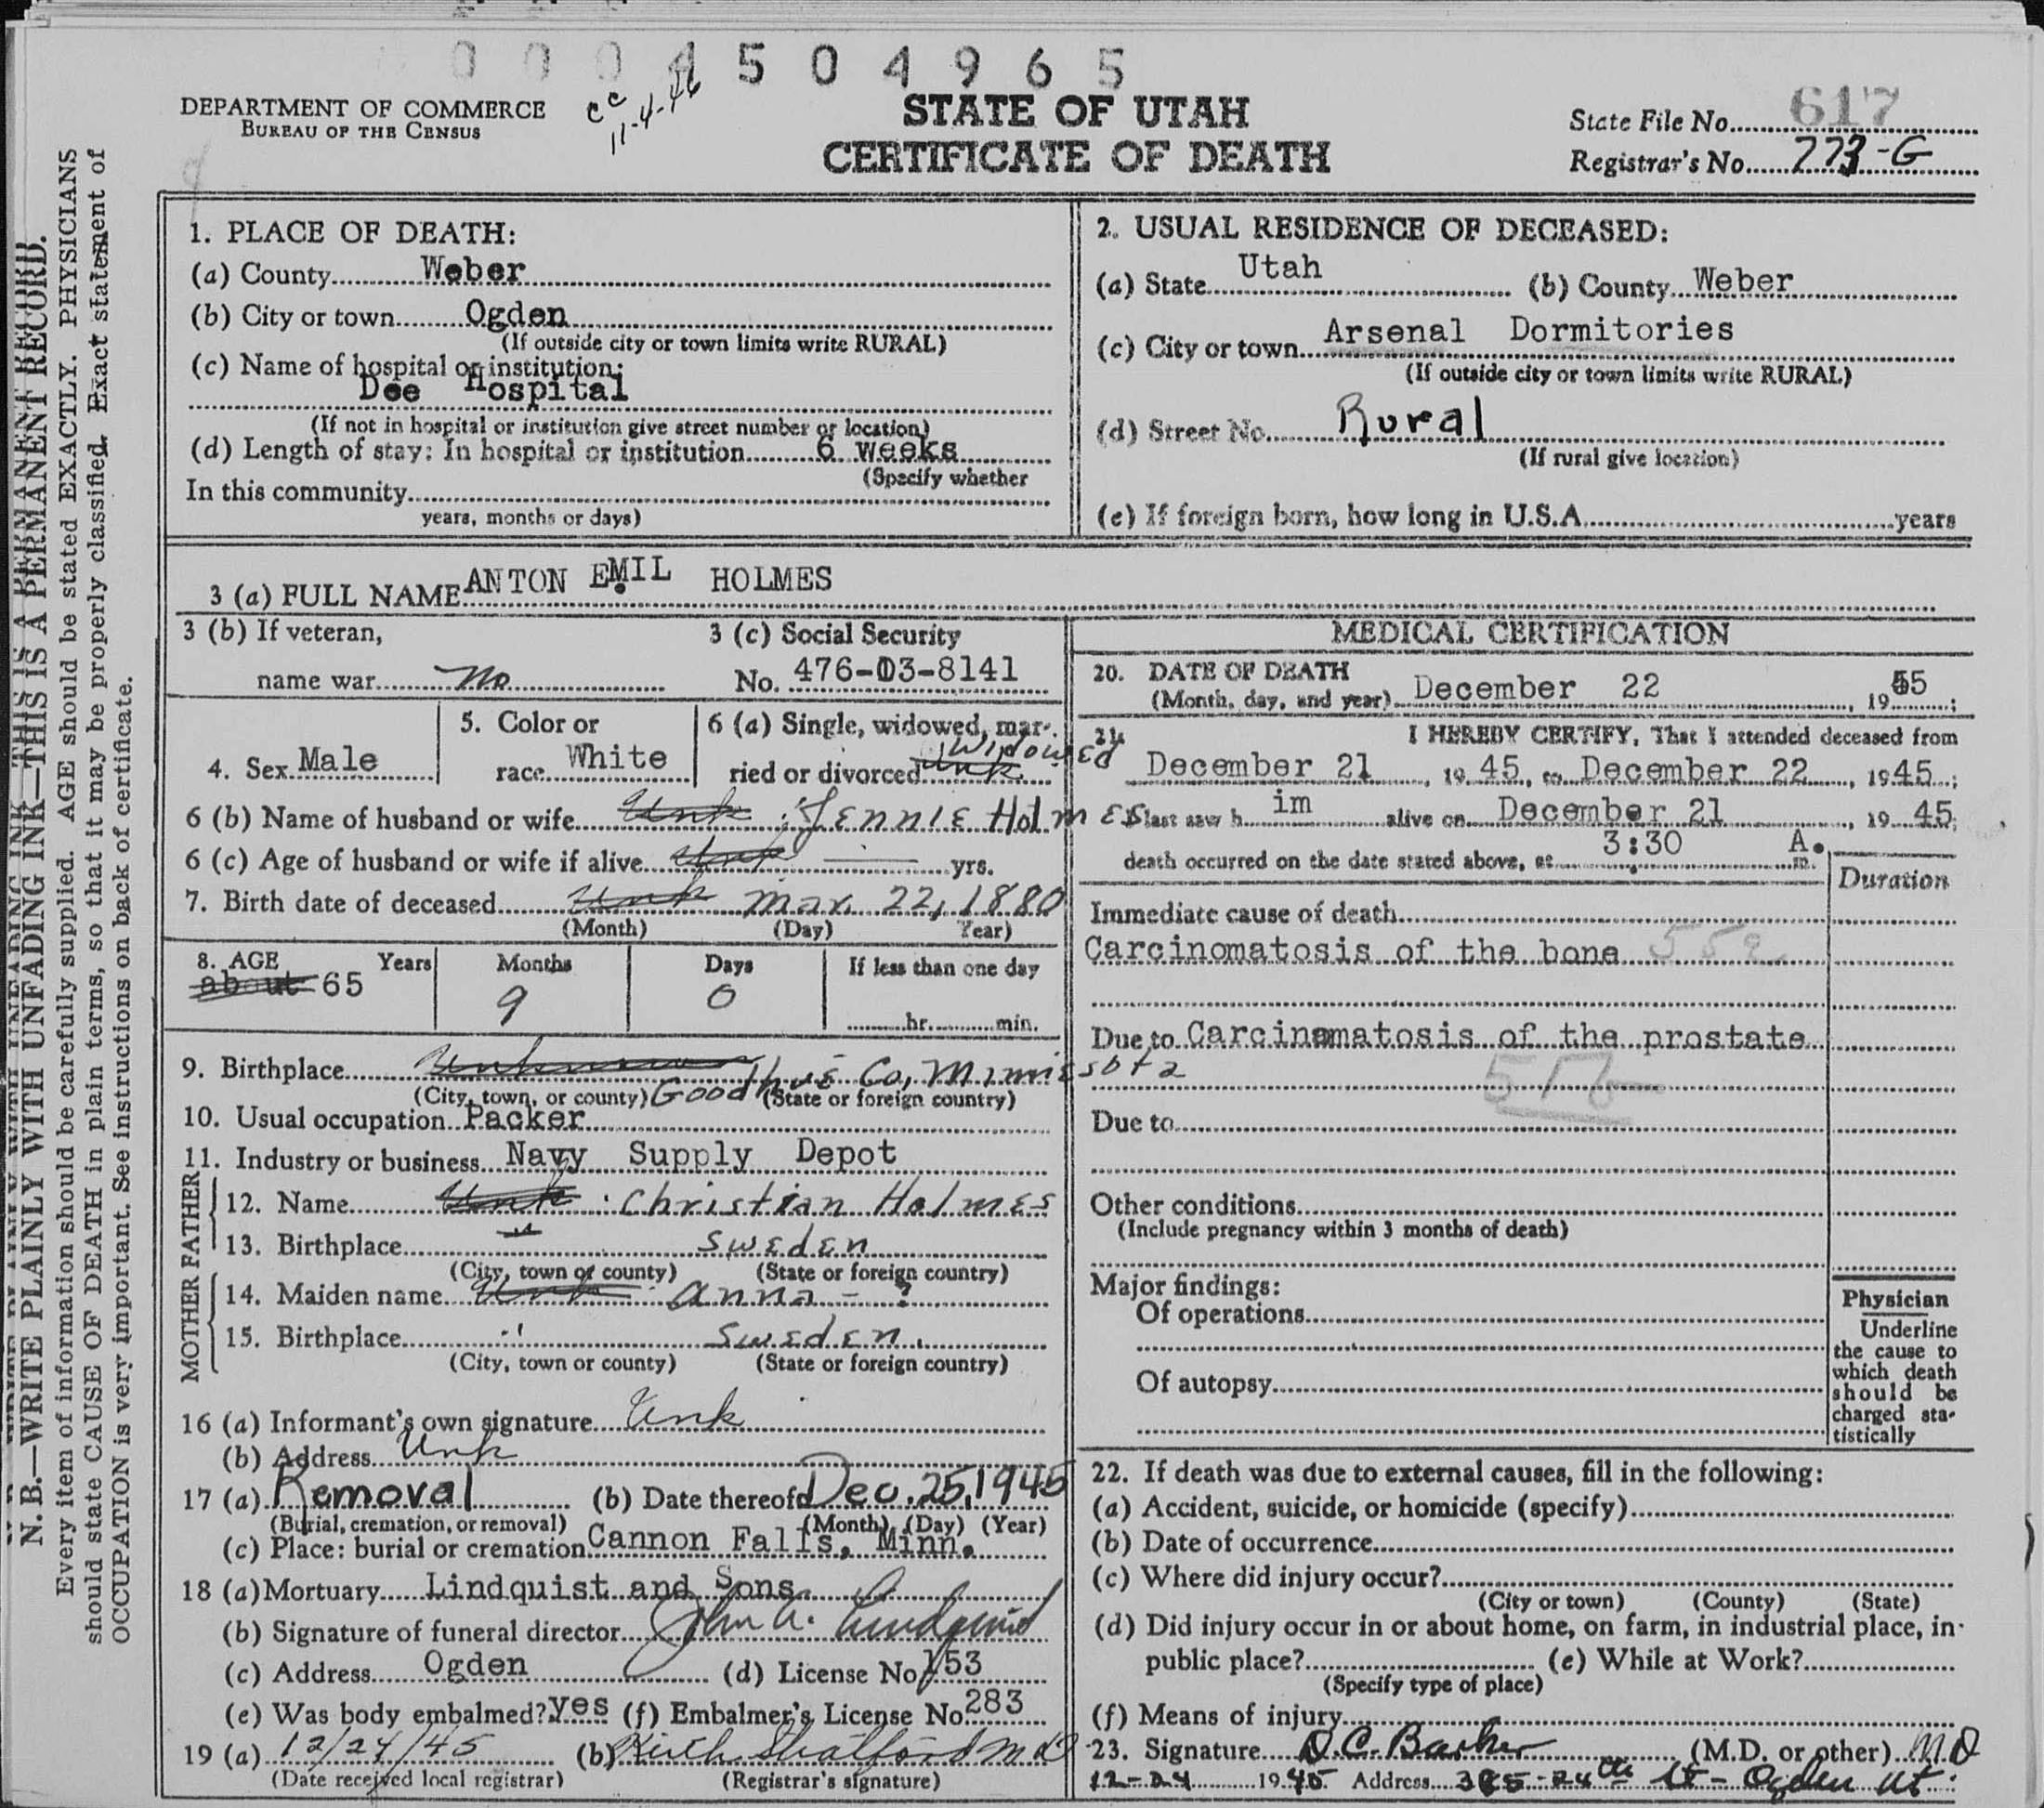 0004504965
DEPARTMENT OF COMMERCE
BUREAU OF THE CENSUS
cc
11-4-46
STATE OF UTAH
CERTIFICATE OF DEATH
State File No. 617
Registrar's No. 773-G
N. B.—WRITE PLAINLY WITH UNFADING INK—THIS IS A PERMANENT RECORD.
Every item of information should be carefully supplied. AGE should be stated EXACTLY. PHYSICIANS
should state CAUSE OF DEATH in plain terms, so that it may be properly classified. Exact statement of
OCCUPATION is very important. See instructions on back of certificate.
1. PLACE OF DEATH:
(a) County Weber
(b) City or town Ogden
(If outside city or town limits write RURAL)
(c) Name of hospital or institution:
Dee Hospital
(If not in hospital or institution give street number or location)
(d) Length of stay: In hospital or institution 6 weeks
(Specify whether
In this community
years, months or days)
2. USUAL RESIDENCE OF DECEASED:
(a) State Utah (b) County Weber
(c) City or town Arsenal Dormitories
(If outside city or town limits write RURAL)
(d) Street No. Rural
(If rural give location)
(e) If foreign born, how long in U.S.A. years
3 (a) FULL NAME ANTON EMIL HOLMES
3 (b) If veteran,
name war No
3 (c) Social Security
No. 476-03-8141
4. Sex Male
5. Color or
race White
6 (a) Single, widowed, mar-
ried or divorced Unk Widowed
6 (b) Name of husband or wife Unk Jennie Holmes
6 (c) Age of husband or wife if alive Unk yrs.
7. Birth date of deceased Unk Mar. 22, 1880
(Month) (Day) Year)
8. AGE Years Months Days If less than one day
about 65 9 0
hr. min.
9. Birthplace Unknown Goodhue Co, Minnesota
(City, town, or county) (State or foreign country)
10. Usual occupation Packer
11. Industry or business Navy Supply Depot
FATHER
12. Name Unk Christian Holmes
13. Birthplace " Sweden
(City, town or county) (State or foreign country)
MOTHER
14. Maiden name Unk Anna - ?
15. Birthplace " Sweden.
(City, town or county) (State or foreign country)
16 (a) Informant's own signature Unk
(b) Address Unk
17 (a) Removal (b) Date thereof Dec. 25, 1945
(Burial, cremation, or removal) (Month) (Day) (Year)
(c) Place: burial or cremation Cannon Falls, Minn.
18 (a) Mortuary Lindquist and Sons
(b) Signature of funeral director John A. Lindquist
(c) Address Ogden (d) License No. 153
(e) Was body embalmed? yes (f) Embalmer's License No. 283
19 (a) 12/24/45 (b) M D
(Date received local registrar) (Registrar's signature)
MEDICAL CERTIFICATION
20. DATE OF DEATH
(Month, day, and year) December 22, 1945;
21. I HEREBY CERTIFY, That I attended deceased from
December 21, 1945, to December 22, 1945;
I last saw him alive on December 21, 1945;
death occurred on the date stated above, at 3:30 A. m.
Duration
Immediate cause of death
Carcinomatosis of the bone
Due to Carcinomatosis of the prostate
Due to
Other conditions
(Include pregnancy within 3 months of death)
Major findings:
Of operations
Of autopsy
Physician
Underline
the cause to
which death
should be
charged sta-
tistically
22. If death was due to external causes, fill in the following:
(a) Accident, suicide, or homicide (specify)
(b) Date of occurrence
(c) Where did injury occur?
(City or town) (County) (State)
(d) Did injury occur in or about home, on farm, in industrial place, in
public place? (e) While at Work?
(Specify type of place)
(f) Means of injury
23. Signature D. C. Barker (M.D. or other) M.D
12-24 1945 Address 24th St - Ogden Ut.